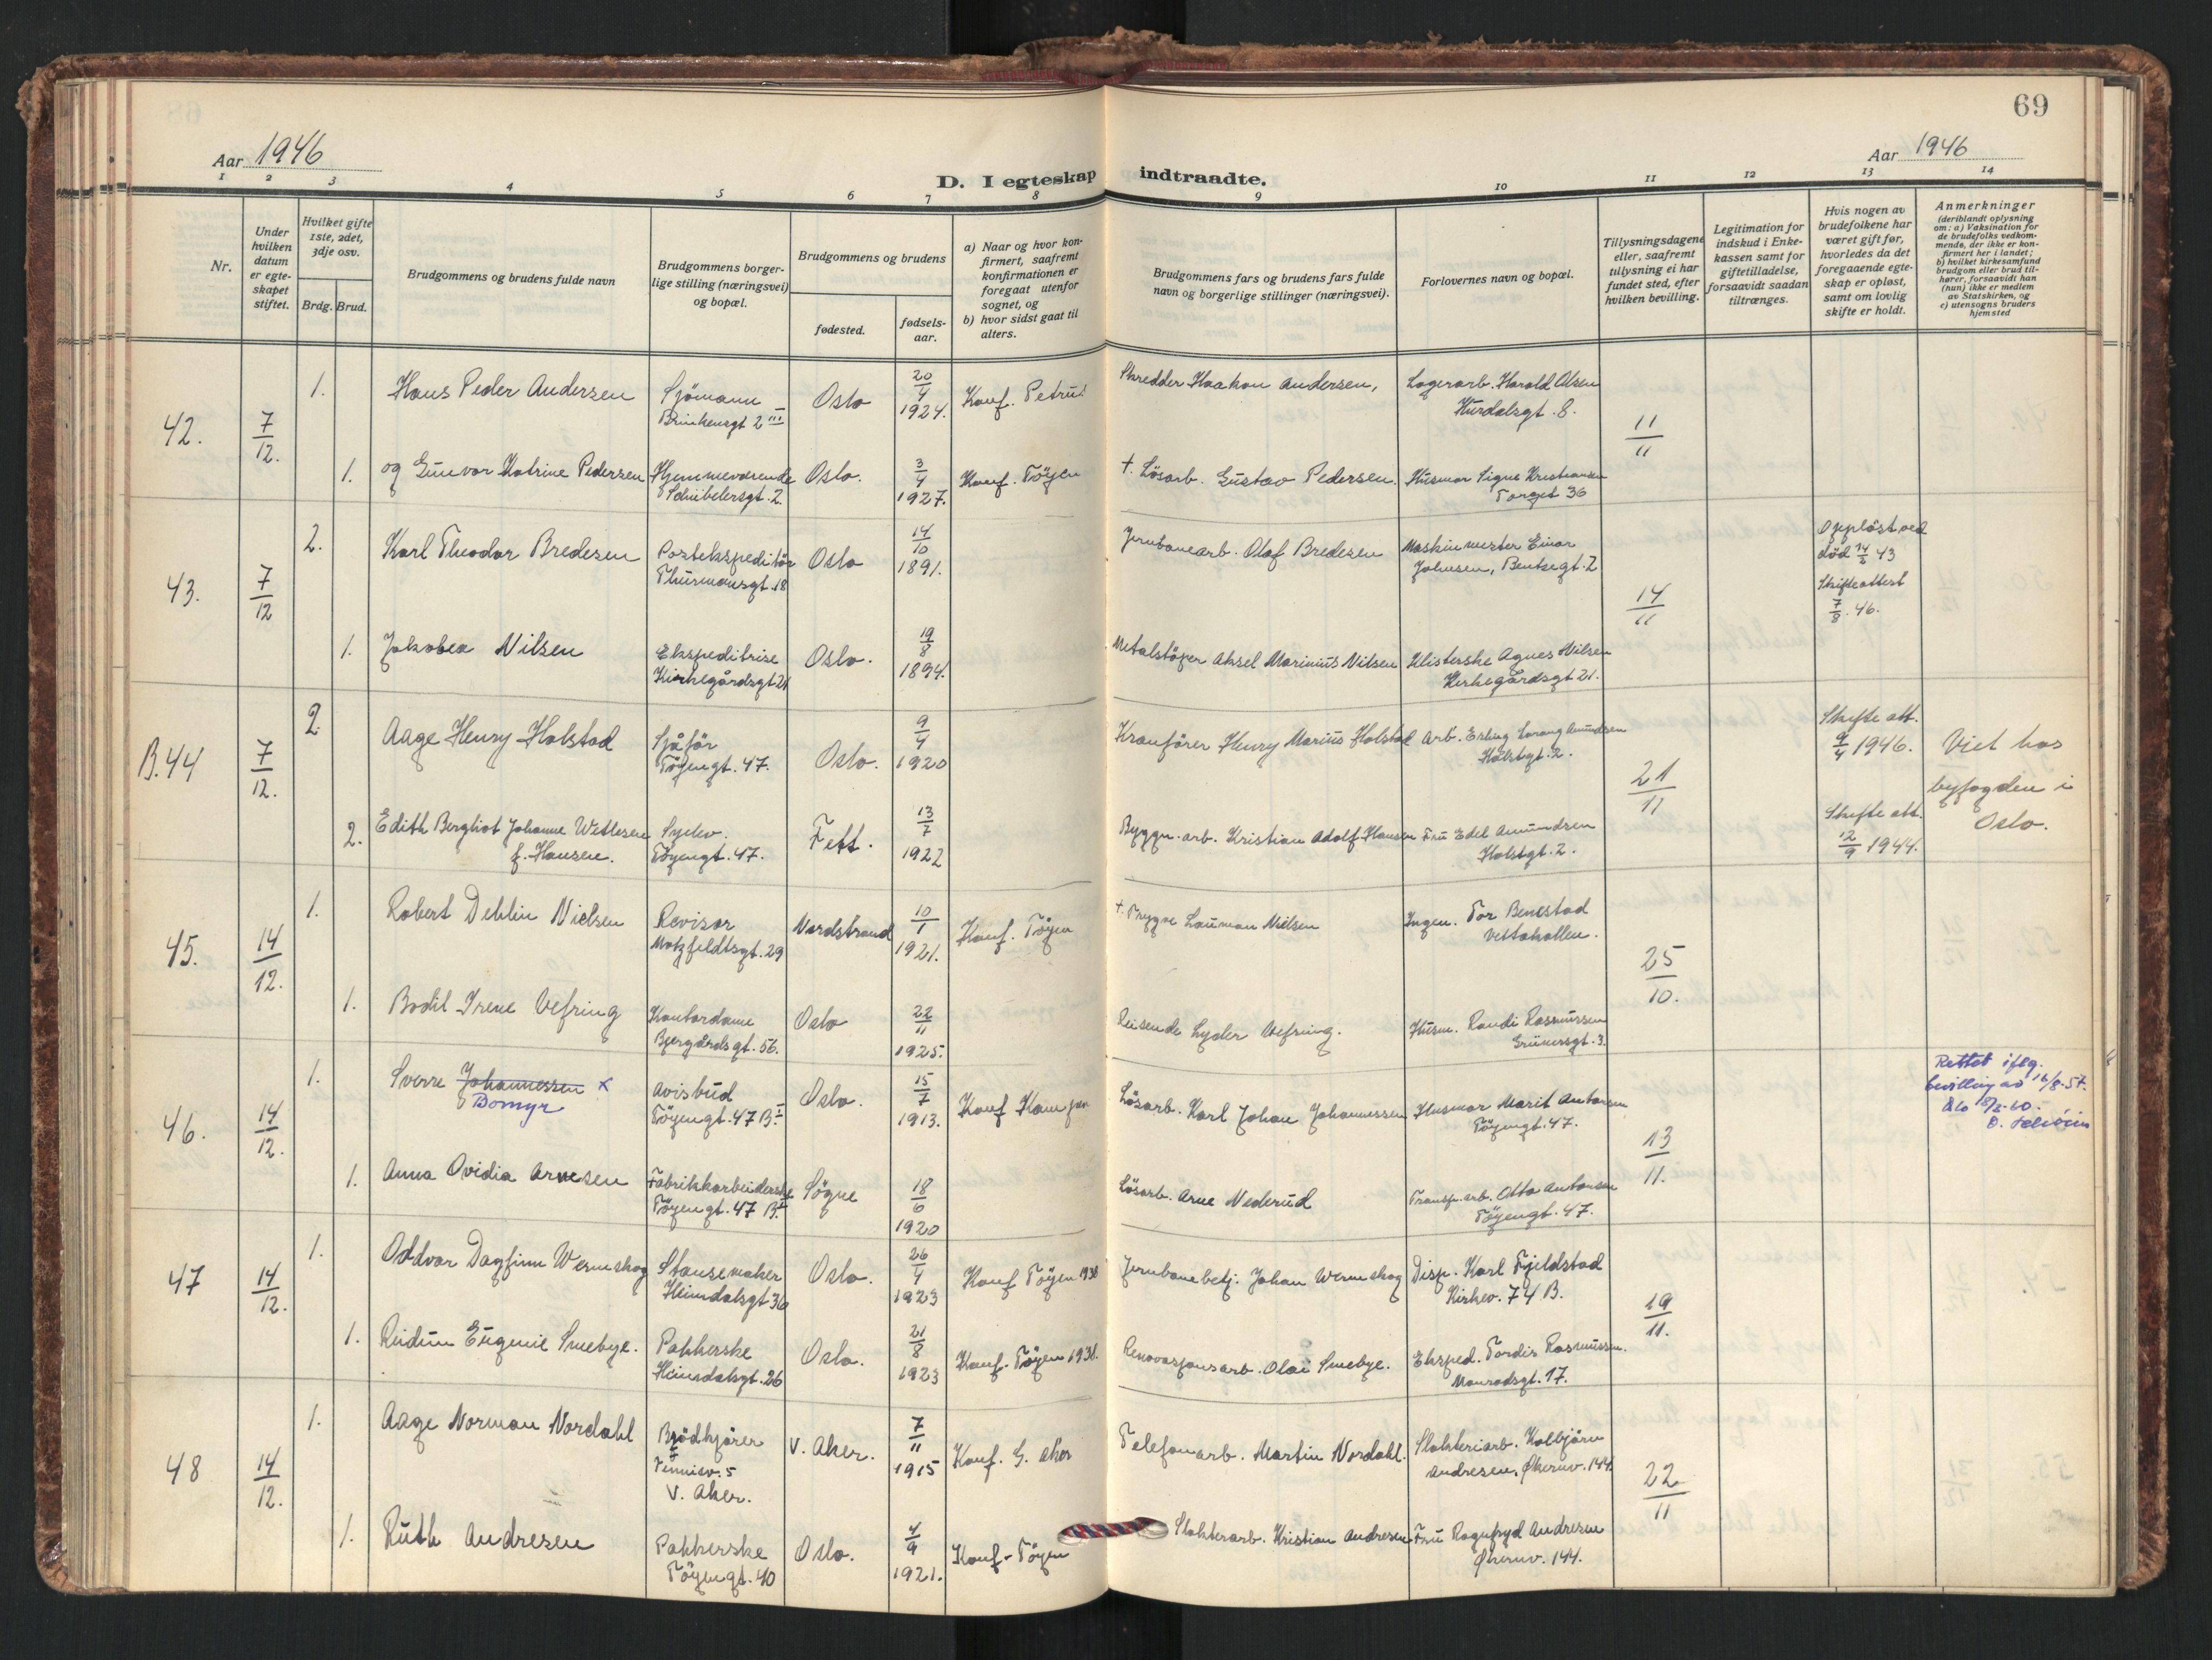 69
Aar 1946
Aar 1946
D. I egteskap indtraadte.
1 2 3 4 5 6 7 8 9 10 11 12 13 14
Nr.
Under hvilken datum er egteskapet stiftet.
Hvilket gifte 1ste, 2det, 3dje osv.
Brdg. Brud.
Brudgommens og brudens fulde navn
Brudgommens borgerlige stilling (næringsvei) og bopæl.
Brudgommens og brudens
fødested.
fødselsaar.
a) Naar og hvor konfirmert, saafremt konfirmationen er foregaat utenfor sognet, og
b) hvor sidst gaat til alters.
Brudgommens fars og brudens fars fulde navn og borgerlige stillinger (næringsvei).
Forlovernes navn og bopæl.
Tillysningsdagene eller, saafremt tillysning ei har fundet sted, efter hvilken bevilling.
Legitimation for indskud i Enkekassen samt for giftetilladelse, forsaavidt saadan tiltrænges.
Hvis nogen av brudefolkene har været gift før, hvorledes da det foregaaende egteskap er opløst, samt om lovlig skifte er holdt.
Anmerkninger
(deriblandt oplysning om: a) Vaksination for de brudefolks vedkommende, der ikke er konfirmert her i landet;
b) hvilket kirkesamfund brudgom eller brud tilhører, forsaavidt han (hun) ikke er medlem av Statskirken, og
c) utensogns bruders hjemsted
42. 7/12. 11/11
1. Hans Peder Andersen
Sjömann
Brinkensgt 2 III
Oslo
20/4 1924.
Konf. Petrus
Skredder Haakon Andersen,
Lagerarb. Harald Olsen
Hurdalsgt. 8.
1. og Gunvor Katrine Pedersen
Hjemmeværende
Schübelersgt. 2.
Oslo.
3/4 1927.
Konf. Töyen
† Lösarb. Gustav Pedersen.
Husmor Signe Kristiansen
Torget 36
43. 7/12 14/11
2. Karl Theodor Bredesen
Postekspeditör
Thurmansgt. 18
Oslo
14/10 1891.
Jernbanearb. Olaf Bredesen
Maskinmester Einar
Johnsen, Bentsegt. 2
Opplöst ved
död 14/2 43
Skifteattest
7/8. 46.
1. Jakobea Nilsen
Ekspeditrise
Kirkegårdsgt 21
Oslo.
19/8 1894.
Metalstöper Aksel Marinius Nilsen
Klisterske Agnes Nilsen
Kirkegårdsgt 21.
B.44 7/12. 21/11
2. Aage Henry Holstad
Sjåför
Töyengt. 47.
Oslo.
9/4 1920
Kranförer Henry Marius Holstad
Arb. Erling Lorang Amundsen
Holstgt. 2.
Skifte att.
9/4 1946.
Viet hos
byfogden i
Oslo.
2. Edith Bergliot Johanne Wetlesen
f. Hansen.
Syerv.
Töyengt. 47.
Fett.
13/7 1922
Byggn. arb. Kristian Adolf Hansen
Fru Edel Amundsen
Holstgt. 2.
Skifte att.
12/9 1944.
45. 14/12. 25/10.
1. Robert Dehlin Nielsen
Revisor
Motzfeldtsgt. 29
Nordstrand
10/1 1921.
Konf. Töyen
† Trygve Lauman Nielsen
Ingen. Tor Benestad
Vettakollen.
1. Bodil Irene Vefring
Kontordame
Bjergårdsgt. 56.
Oslo
22/11 1925.
Reisende Lyder Vefring.
Husm. Randi Rasmussen
Grünersgt. 3.
46. 14/12. 13/11.
1. Sverre Johannessen x
Bomyr
Avisbud
Töyengt. 47 B. I
Oslo.
15/7 1913.
Konf Kampen
Lösarb. Karl Johan Johannessen
Husmor Marit Antonsen
Töyengt. 47.
Rettet iflg.
bevilling av 16/8-57.
1. Anna Ovidia Arnesen
Fabrikkarbeiderske
Töyengt. 47 B. I
Sögne
18/6 1920
Lösarb. Arne Nederud
Transp. arb. Otto Antonsen
Töyengt. 47.
47 14/12. 19/11.
1. Oddvar Dagfinn Werneskog
Stansemaker
Heimdalsgt 36
Oslo.
26/4 1923
Konf Töyen 1938
Jernbanebetj. Johan Werneskog
Disp. Karl Fjeldstad
Kirkev. 74 B.
1. Reidun Eugenie Smebye.
Pakkerske
Heimdalsgt. 26
Oslo.
21/8 1923
Konf. Töyen 1938.
Renovasjonsarb. Olai Smebye.
Eksped. Tordis Rasmussen.
Monradsgt. 17.
48 14/12. 22/11
1. Aage Norman Nordahl
Brödkjörer
Tennisv. 5
V. Aker.
V. Aker.
7/11 1915
Konf. G. Aker
Telefonarb. Martin Nordahl.
Slakteriarb. Kolbjörn
Andresen, Økernv. 144.
1. Ruth Andresen
Pakkerske
Töyengt. 40
Oslo.
4/9 1921.
Konf- Töyen
Slakterarb. Kristian Andresen
Fru Ragnfryd Andresen
Økernv. 144.